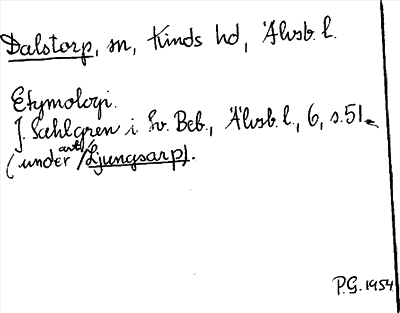 Dalstorp, sn, Kinds hd, Älvsb. l.
Etymologi.
J. Sahlgren i Sv. Beb., Älvsb. l., 6, s. 51
(under art. Ljungsarp).
P.G. 1954